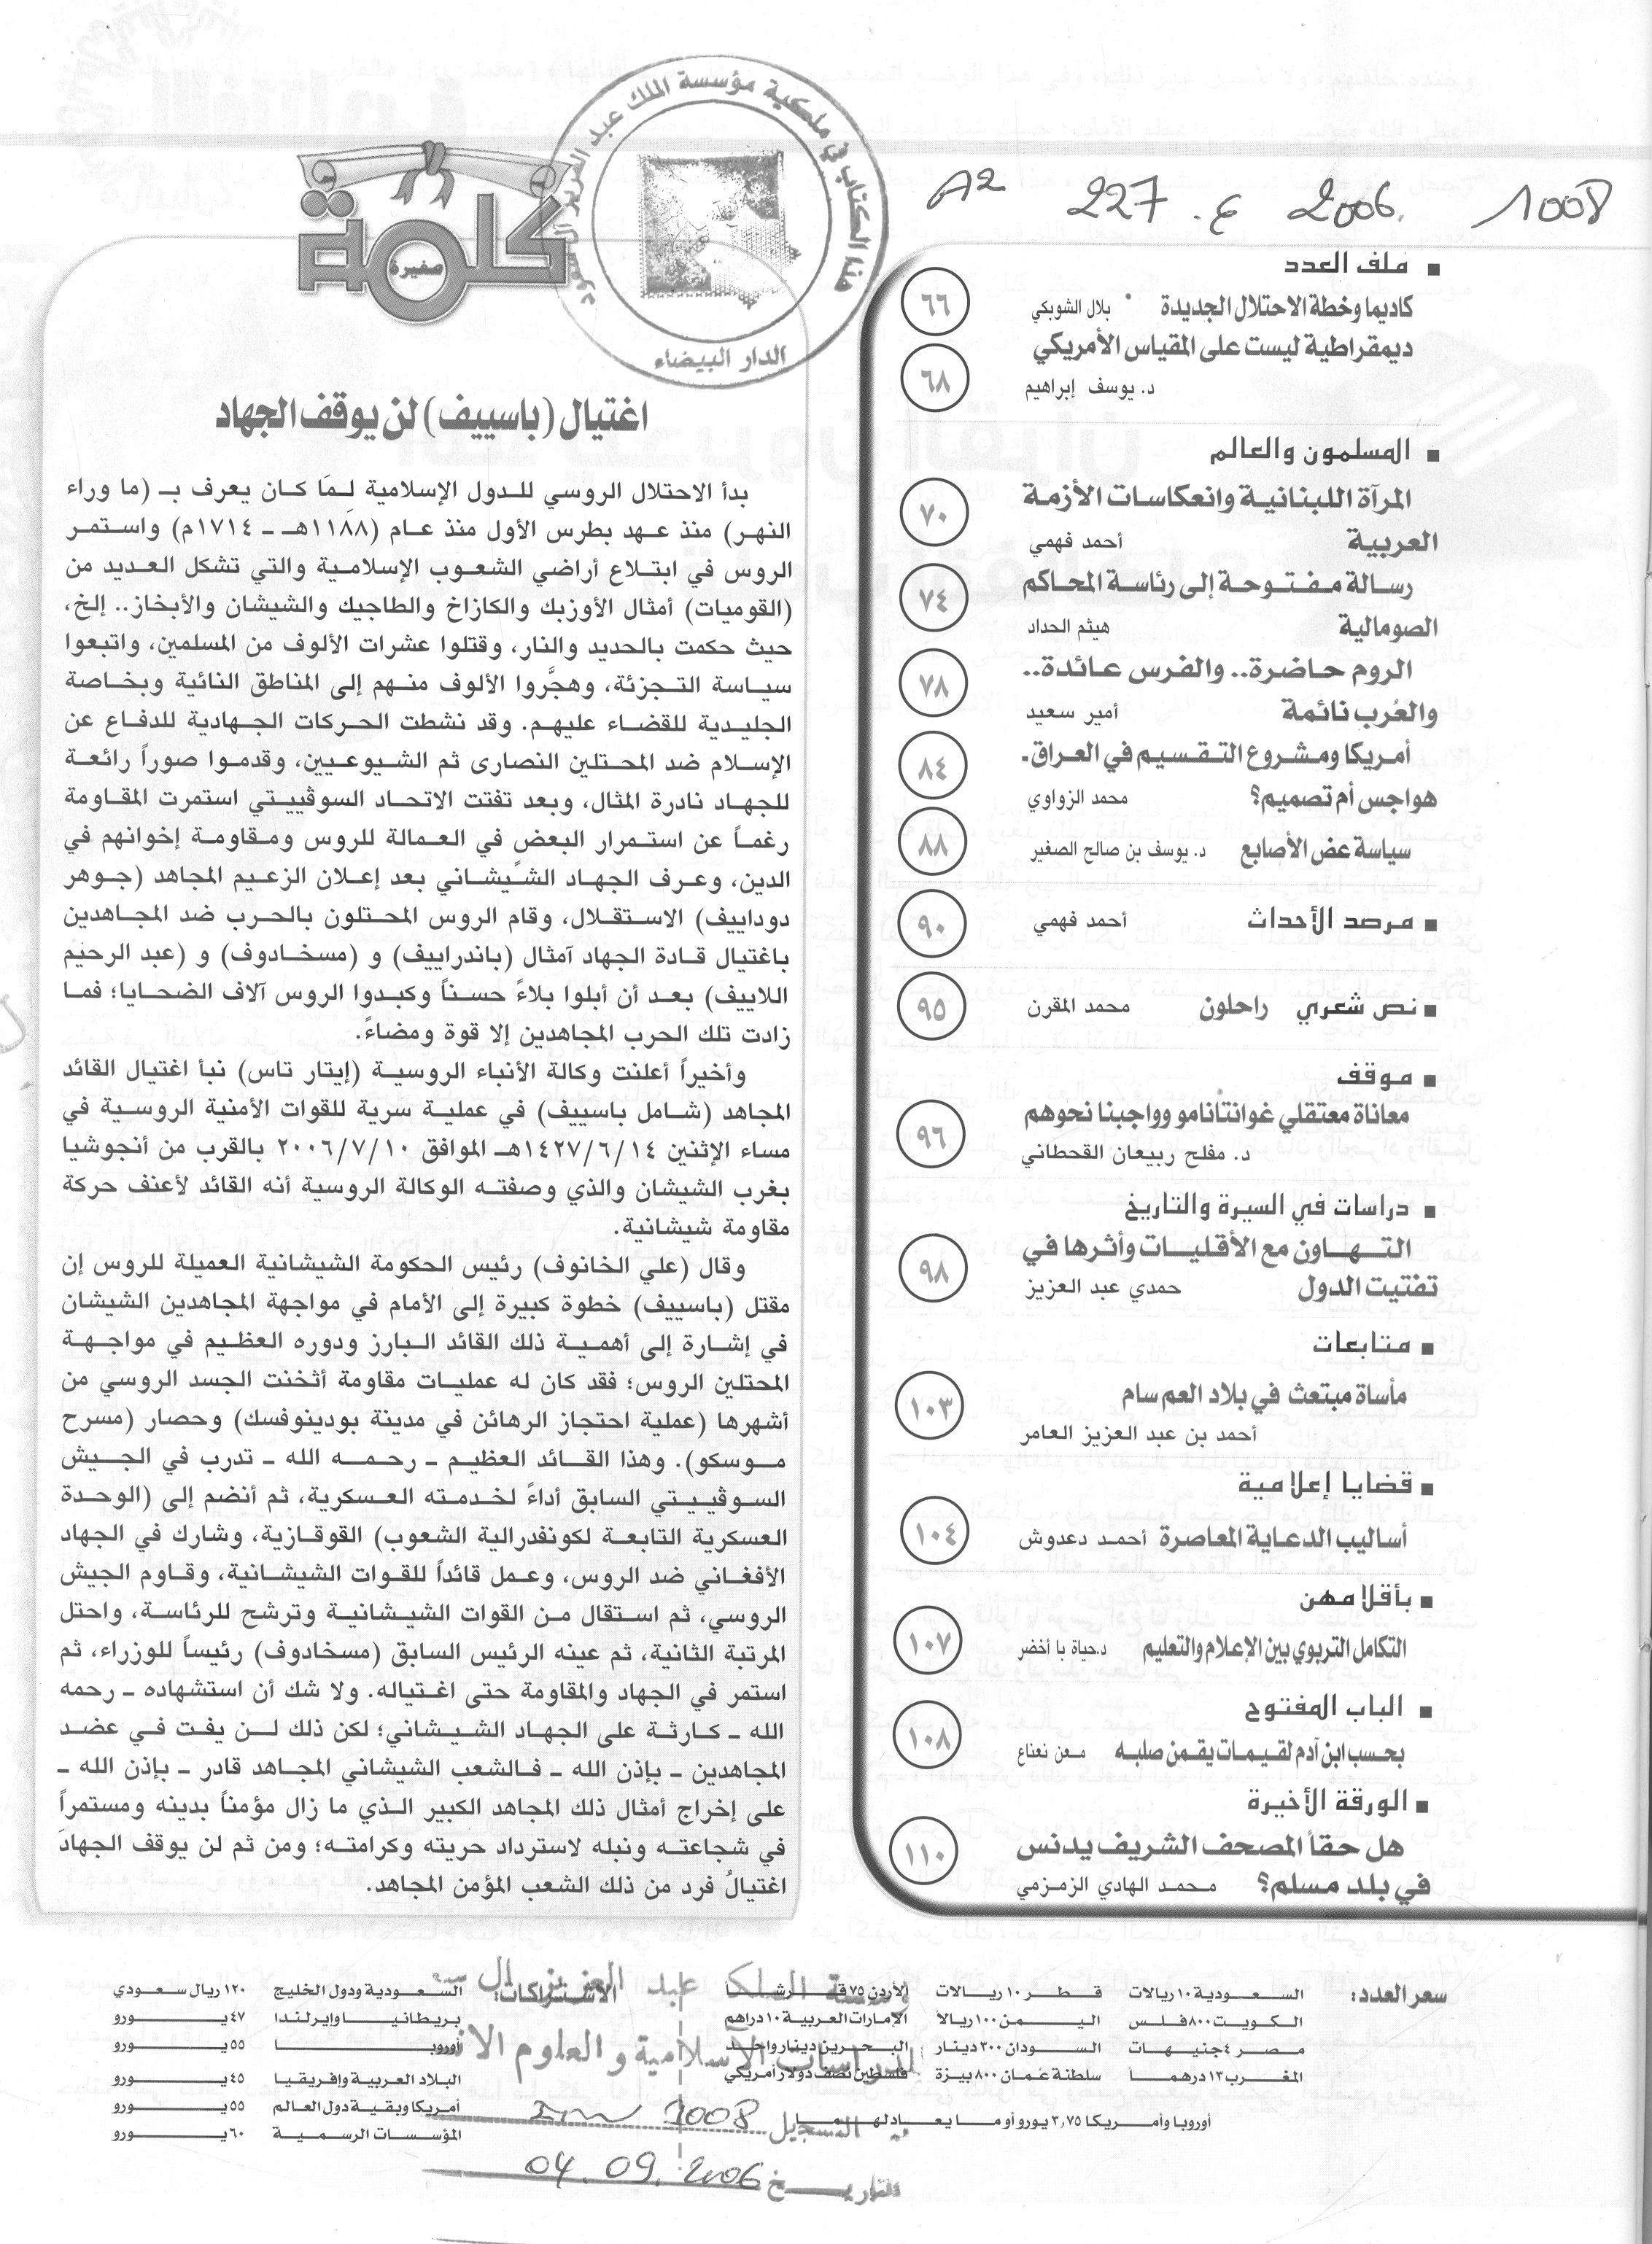 A2 227 .ع 2006. 1008
هذا الكتاب في ملكية مؤسسة الملك عبد العزيز
الدار البيضاء
■ ملف العدد
كاديما وخطة الاحتلال الجديدة بلال الشوبكي ٦٦
ديمقراطية ليست على المقياس الأمريكي
د. يوسف إبراهيم ٦٨
■ المسلمون والعالم
المرآة اللبنانية وانعكاسات الأزمة
العربية أحمد فهمي ٧٠
رسالة مفتوحة إلى رئاسة المحاكم
الصومالية هيثم الحداد ٧٤
الروم حاضرة.. والفرس عائدة..
والعُرب نائمة أمير سعيد ٧٨
أمريكا ومشروع التقسيم في العراق ـ
هواجس أم تصميم؟ محمد الزواوي ٨٤
سياسة عض الأصابع د. يوسف بن صالح الصغير ٨٨
■ مرصد الأحداث أحمد فهمي ٩٠
■ نص شعري راحلون محمد المقرن ٩٥
■ موقف
معاناة معتقلي غوانتانامو وواجبنا نحوهم
د. مفلح ربيعان القحطاني ٩٦
■ دراسات في السيرة والتاريخ
التهاون مع الأقليات وأثرها في
تفتيت الدول حمدي عبد العزيز ٩٨
■ متابعات
مأساة مبتعث في بلاد العم سام
أحمد بن عبد العزيز العامر ١٠٣
■ قضايا إعلامية
أساليب الدعاية المعاصرة أحمد دعدوش ١٠٤
■ بأقلامهن
التكامل التربوي بين الإعلام والتعليم د.حياة با أخضر ١٠٧
■ الباب المفتوح
بحسب ابن آدم لقيمات يقمن صلبه معن نعناع ١٠٨
■ الورقة الأخيرة
هل حقاً المصحف الشريف يدنس
في بلد مسلم؟ محمد الهادي الزمزمي ١١٠
كلمة
صغيرة
اغتيال (باسييف) لن يوقف الجهاد
بدأ الاحتلال الروسي للدول الإسلامية لـمَا كان يعرف بـ (ما وراء
النهر) منذ عهد بطرس الأول منذ عام (١١٨٨هـ ـ ١٧١٤م) واستمر
الروس في ابتلاع أراضي الشعوب الإسلامية والتي تشكل العديد من
(القوميات) أمثال الأوزبك والكازاخ والطاجيك والشيشان والأبخاز.. إلخ،
حيث حكمت بالحديد والنار، وقتلوا عشرات الألوف من المسلمين، واتبعوا
سياسة التجزئة، وهجَّروا الألوف منهم إلى المناطق النائية وبخاصة
الجليدية للقضاء عليهم. وقد نشطت الحركات الجهادية للدفاع عن
الإسلام ضد المحتلين النصارى ثم الشيوعيين، وقدموا صوراً رائعة
للجهاد نادرة المثال، وبعد تفتت الاتحاد السوڤييتي استمرت المقاومة
رغماً عن استمرار البعض في العمالة للروس ومقاومة إخوانهم في
الدين، وعرف الجهاد الشيشاني بعد إعلان الزعيم المجاهد (جوهر
دوداييف) الاستقلال، وقام الروس المحتلون بالحرب ضد المجاهدين
باغتيال قادة الجهاد أمثال (باندراييف) و (مسخادوف) و (عبد الرحيم
اللاييف) بعد أن أبلوا بلاءً حسناً وكبدوا الروس آلاف الضحايا؛ فما
زادت تلك الحرب المجاهدين إلا قوة ومضاءً.
وأخيراً أعلنت وكالة الأنباء الروسية (إيتار تاس) نبأ اغتيال القائد
المجاهد (شامل باسييف) في عملية سرية للقوات الأمنية الروسية في
مساء الإثنين ١٤٢٧/٦/١٤هـ الموافق ٢٠٠٦/٧/١٠ بالقرب من أنجوشيا
بغرب الشيشان والذي وصفته الوكالة الروسية أنه القائد لأعنف حركة
مقاومة شيشانية.
وقال (علي الخانوف) رئيس الحكومة الشيشانية العميلة للروس إن
مقتل (باسييف) خطوة كبيرة إلى الأمام في مواجهة المجاهدين الشيشان
في إشارة إلى أهمية ذلك القائد البارز ودوره العظيم في مواجهة
المحتلين الروس؛ فقد كان له عمليات مقاومة أثخنت الجسد الروسي من
أشهرها (عملية احتجاز الرهائن في مدينة بودينوفسك) وحصار (مسرح
موسكو). وهذا القائد العظيم ـ رحمه الله ـ تدرب في الجيش
السوڤييتي السابق أداءً لخدمته العسكرية، ثم أنضم إلى (الوحدة
العسكرية التابعة لكونفدرالية الشعوب) القوقازية، وشارك في الجهاد
الأفغاني ضد الروس، وعمل قائداً للقوات الشيشانية، وقاوم الجيش
الروسي، ثم استقال من القوات الشيشانية وترشح للرئاسة، واحتل
المرتبة الثانية، ثم عينه الرئيس السابق (مسخادوف) رئيساً للوزراء، ثم
استمر في الجهاد والمقاومة حتى اغتياله. ولا شك أن استشهاده ـ رحمه
الله ـ كارثة على الجهاد الشيشاني؛ لكن ذلك لن يفت في عضد
المجاهدين ـ بإذن الله ـ فالشعب الشيشاني المجاهد قادر ـ بإذن الله ـ
على إخراج أمثال ذلك المجاهد الكبير الذي ما زال مؤمناً بدينه ومستمراً
في شجاعته ونبله لاسترداد حريته وكرامته؛ ومن ثم لن يوقف الجهادَ
اغتيالُ فرد من ذلك الشعب المؤمن المجاهد.
سعر العدد: السعودية ١٠ ريالات قطر ١٠ ريالات الأردن ٧٥ قرشا
الكويت ٨٠٠ فلس اليمن ١٠٠ ريالا الإمارات العربية ١٠ دراهم
مصر ٤ جنيهات السودان ٣٠٠ دينار البحرين دينار واحد
المغرب ١٣ درهماً سلطنة عُمان ٨٠٠ بيزة فلسطين نصف دولار أمريكي
أوروبا وأمريكا ٣,٧٥ يورو أو ما يعادلهما
الاشتراكات: السعودية ودول الخليج ١٢٠ ريال سعودي
بريطانيا وإيرلندا ٤٧ يورو
أوروبا ٥٥ يورو
البلاد العربية وإفريقيا ٤٥ يورو
أمريكا وبقية دول العالم ٥٥ يورو
المؤسسات الرسمية ٦٠ يورو
الملك عبد العزيز آل
للدراسات الإسلامية والعلوم
التسجيل 1008
التاريخ 04.09.2006